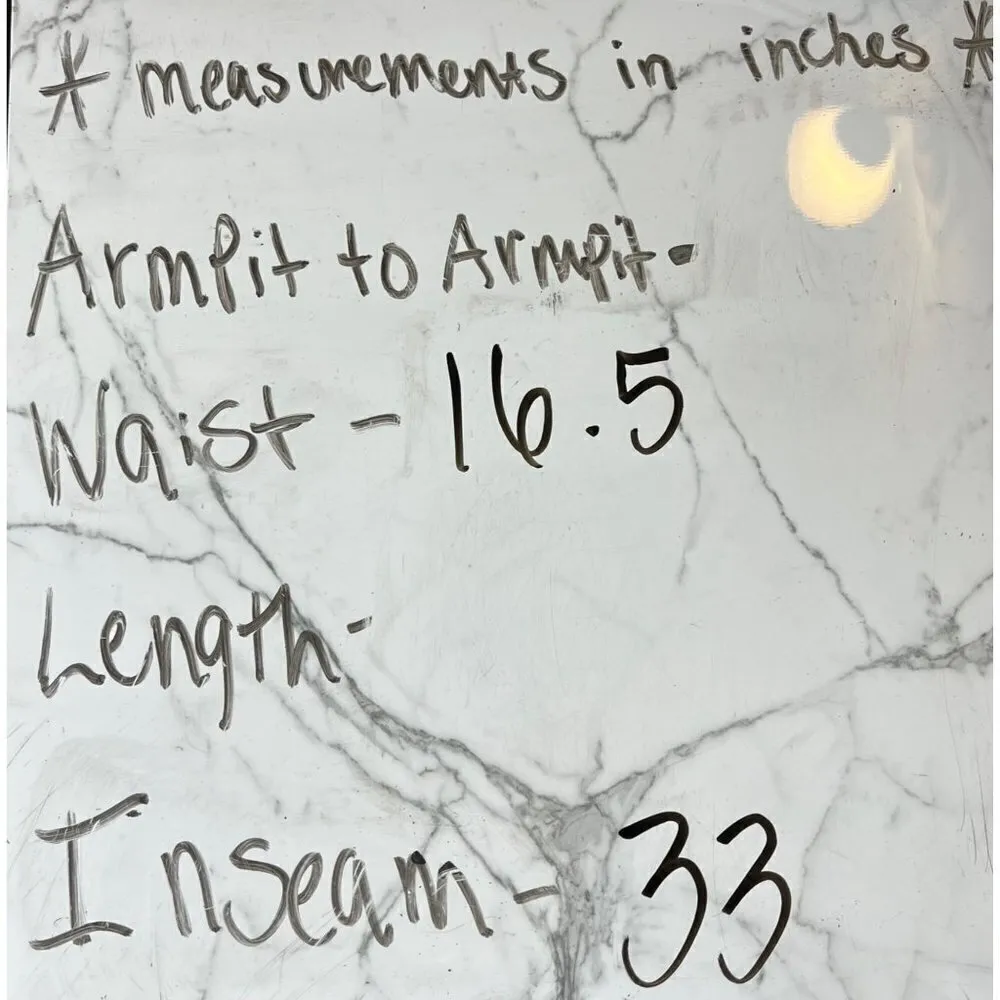 * measurements in inches *
Armpit to Armpit-
Waist - 16.5
Length-
Inseam - 33